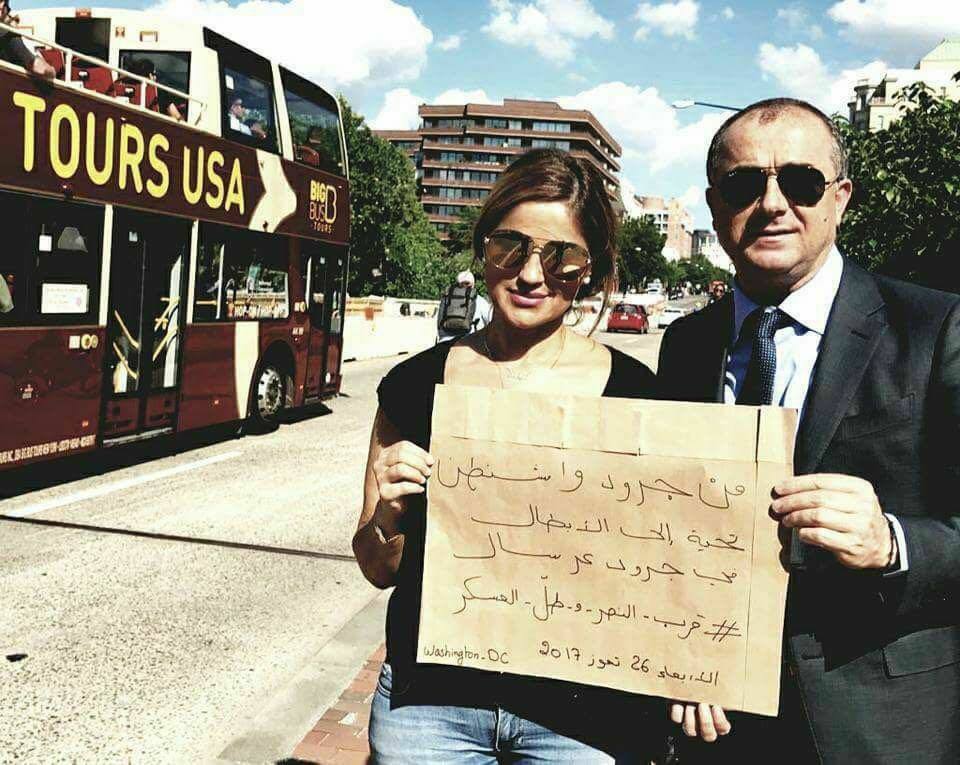 TOURS USA
BIG
BUS
TOURS
من جرود واشنطن
تحية إلى الأبطال
في جرود عرسال
# قرب - النصر - و - طلّ - العسكر
الأربعاء 26 تموز 2017
Washington-DC